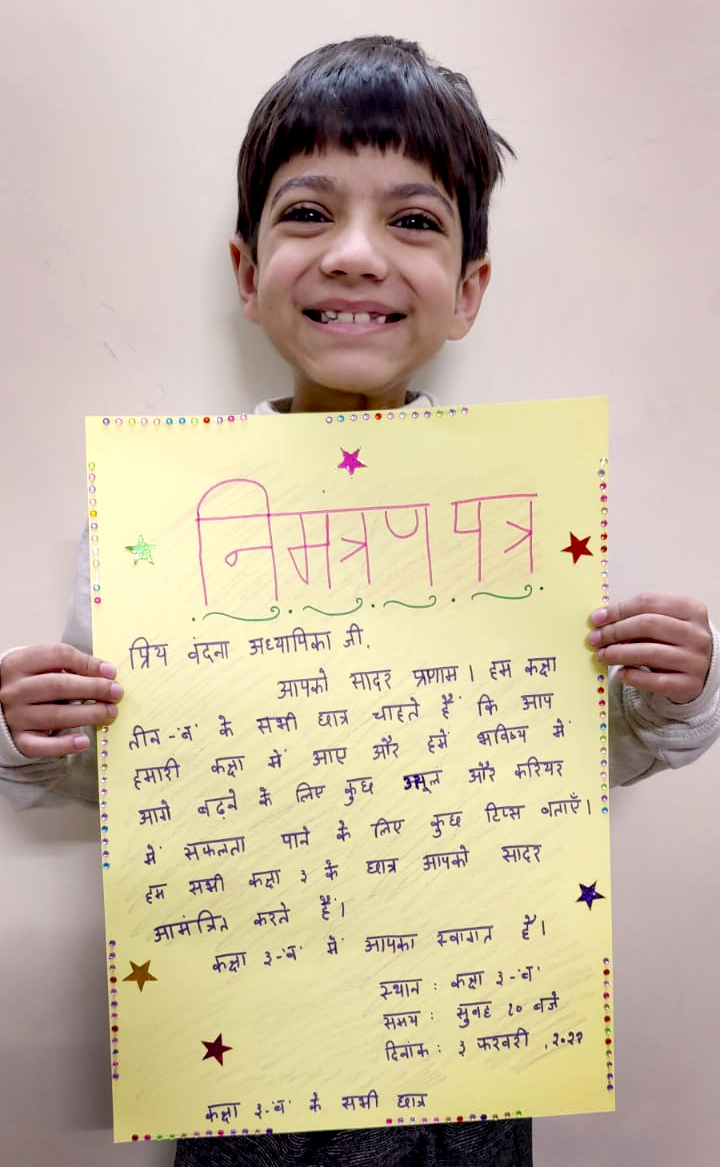 निमंत्रण पत्र
प्रिय वंदना अध्यापिका जी,
आपको सादर प्रणाम । हम कक्षा
तीन -'ब' के सभी छात्र चाहते हैं कि आप
हमारी कक्षा में आए और हमें भविष्य में
आगे बढ़ने के लिए कुछ और करियर
में सफलता पाने के लिए कुछ टिप्स बताएँ।
हम सभी कक्षा ३ के छात्र आपको सादर
आमंत्रित करते हैं।
कक्षा ३-'ब' में आपका स्वागत है।
स्थान : कक्षा ३-'ब'
समय : सुबह १० बजे
दिनांक : ३ फरवरी , २०२२
कक्षा ३-'ब' के सभी छात्र